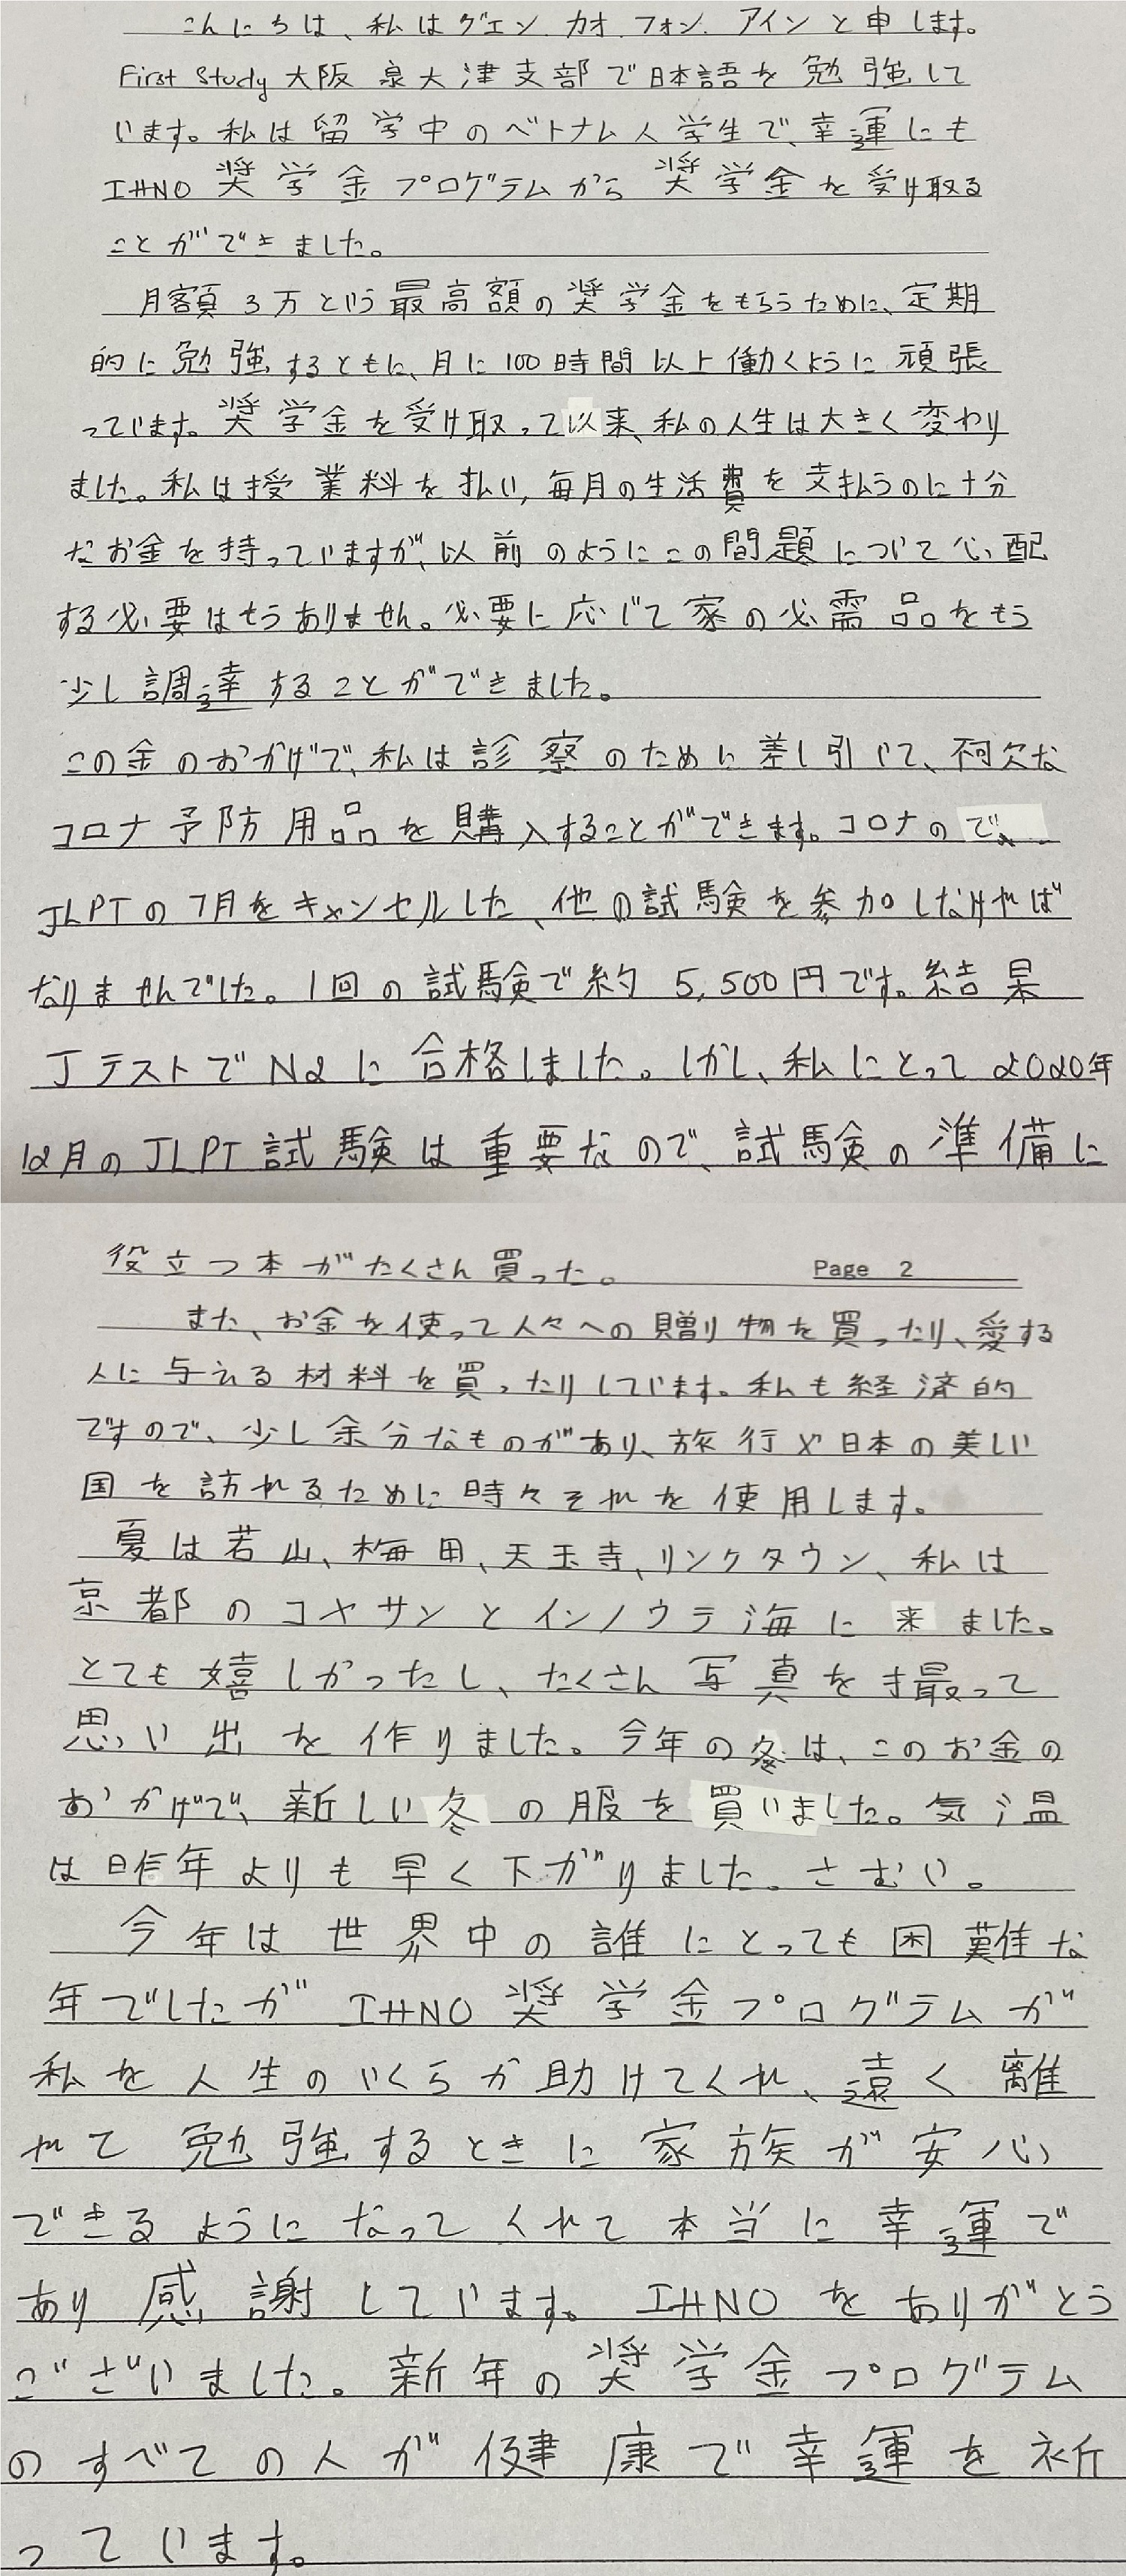 こんにちは、私はグエン カオ フォン アインと申します。
First Study 大阪泉大津支部で日本語を勉強して
います。私は留学中のベトナム人学生で、幸運にも
IHNO 奨学金プログラムから奨学金を受け取る
ことができました。
月額3万という最高額の奨学金をもらうために、定期
的に勉強するともに、月に100時間以上働くように頑張
っています。奨学金を受け取って以来、私の人生は大きく変わり
ました。私は授業料を払い、毎月の生活費を支払うのに十分
なお金を持っていますが、以前のようにこの問題について心配
する必要はもうありません。必要に応じて家の必需品をもう
少し調達することができました。
この金のおかげで、私は診察のために差し引いて、不可欠な
コロナ予防用品を購入することができます。コロナので、
JLPTの7月をキャンセルした、他の試験を参加しなければ
なりませんでした。1回の試験で約 5,500円です。結果
JテストでN2に合格しました。しかし、私にとって2020年
12月のJLPT試験は重要なので、試験の準備に
役立つ本がたくさん買った。 Page 2
また、お金を使って人々への贈り物を買ったり、愛する
人に与える材料を買ったりしています。私も経済的
ですので、少し余分なものがあり、旅行や日本の美しい
国を訪れるために時々それを使用します。
夏は若山、梅田、天王寺、リンクタウン、私は
京都のコヤサンとインノウラ海に来ました。
とても嬉しかったし、たくさん写真を撮って
思い出を作りました。今年の冬は、このお金の
おかげで、新しい冬の服を買いました。気温
は昨年よりも早く下がりました。さむい。
今年は世界中の誰にとっても困難な
年でしたが IHNO 奨学金プログラムが
私を人生のいくらか助けてくれ、遠く離
れて勉強するときに家族が安心
できるようになってくれて本当に幸運で
あり感謝しています。IHNOをありがとう
ございました。新年の奨学金プログラム
のすべての人が健康で幸運を祈
っています。